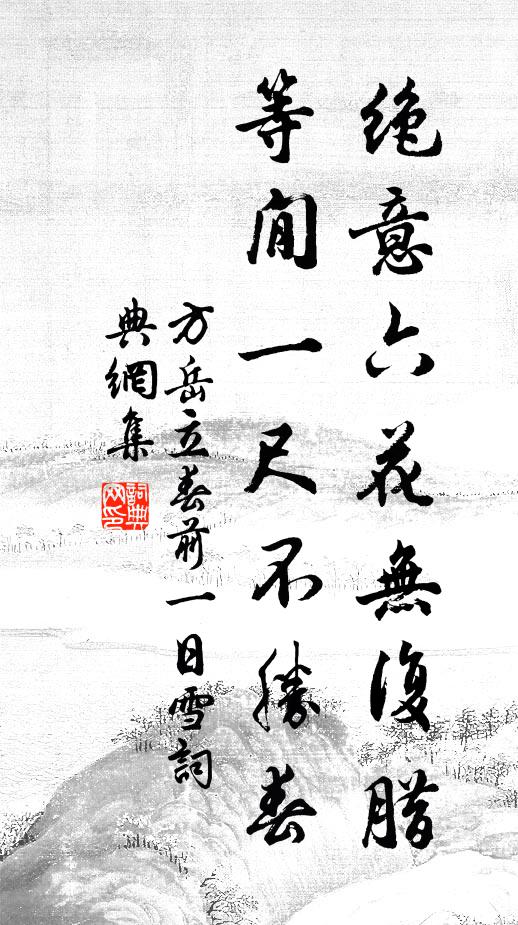 絶意六花無復腊
等閒一尺不勝春
方岳立春前一日雪詞
典網集
詞典
网印